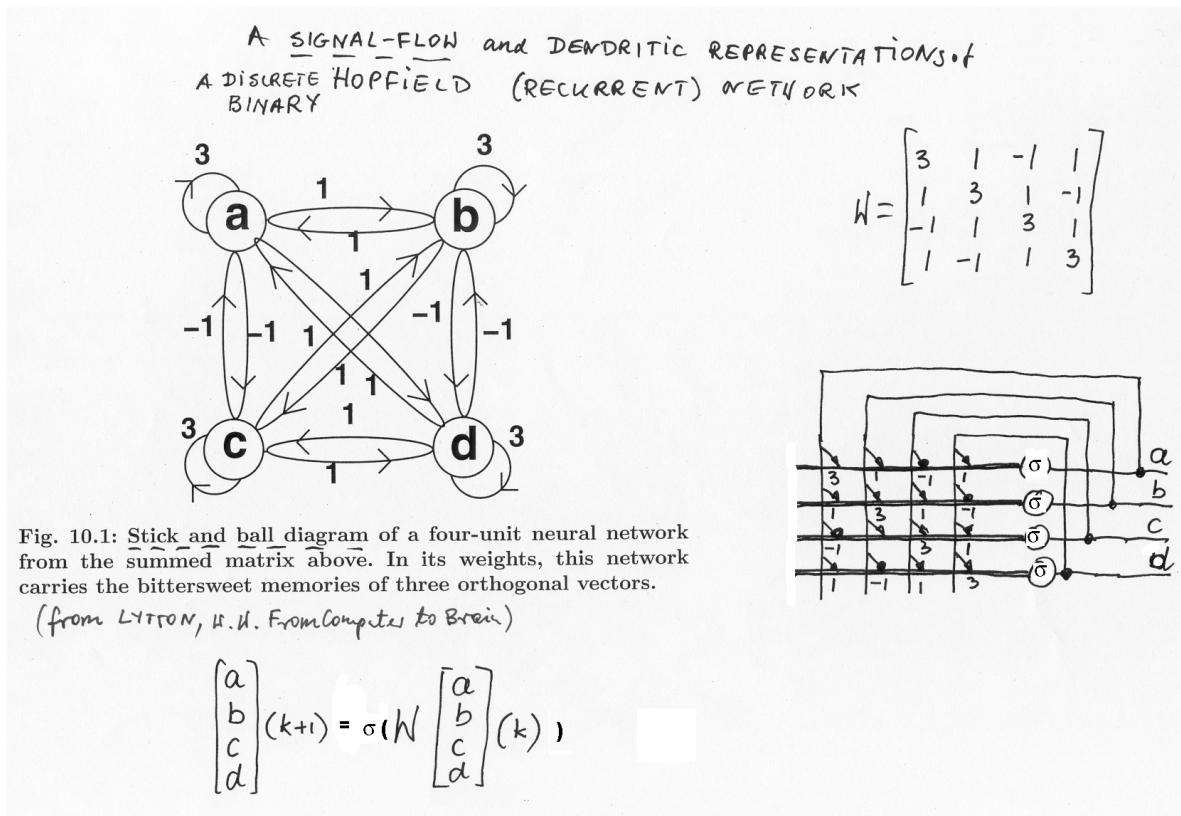 A SIGNAL-FLOW and DENDRITIC REPRESENTATIONS of
A DISCRETE HOPFIELD (RECURRENT) NETWORK
BINARY
3 3
1
a b
1
1
-1 -1 1 -1 -1
1 1
1
3 c d 3
1
W = [3 1 -1 1
1 3 1 -1
-1 1 3 1
1 -1 1 3]
3 1 -1 1 σ a
1 3 1 -1 σ b
-1 1 3 1 σ c
1 -1 1 3 σ d
Fig. 10.1: Stick and ball diagram of a four-unit neural network
from the summed matrix above. In its weights, this network
carries the bittersweet memories of three orthogonal vectors.
(from LYTTON, W.W. From Computer to Brain)
[a b c d] (k+1) = σ(W [a b c d] (k))